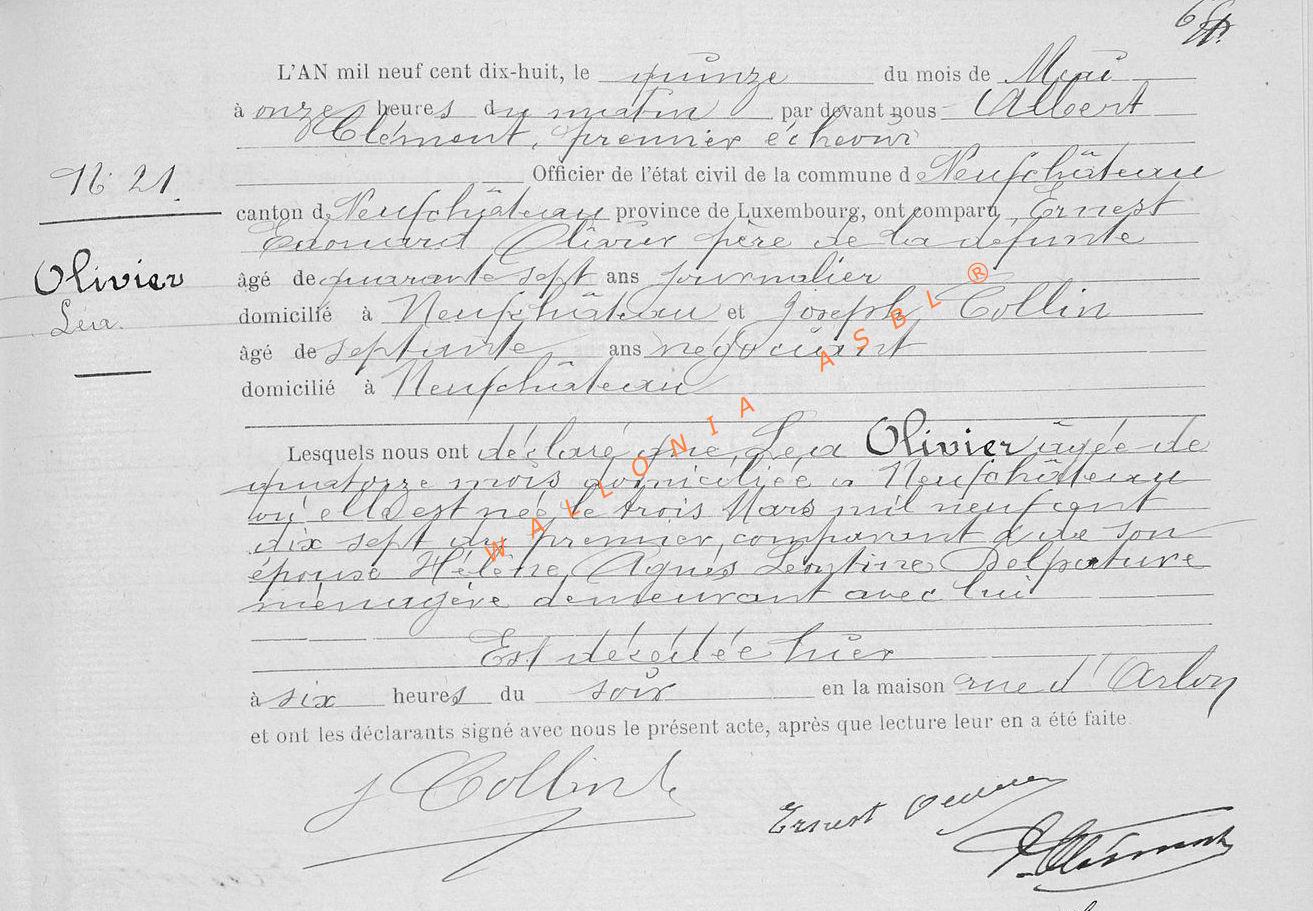 L'AN mil neuf cent dix-huit, le quinze du mois de Mai
à onze heures du matin par devant nous Albert
Clément, premier échevin
N° 21.
Officier de l'état civil de la commune de Neufchâteau
canton de Neufchâteau province de Luxembourg, ont comparu Ernest
Edouard Olivier père de la défunte
Olivier
Léa.
âgé de quarante sept ans journalier
domicilié à Neufchâteau et Joseph Collin
âgé de septante ans négociant
domicilié à Neufchâteau
Lesquels nous ont déclaré que Léa Olivier âgée de
quatorze mois domiciliée à Neufchâteau
où elle est née le trois Mars mil neuf cent
dix sept du premier comparant & de son
épouse Hélène Agnès Léontine Delpature
ménagère demeurant avec lui
Est décédée hier
à six heures du soir en la maison rue d'Arlon
et ont les déclarants signé avec nous le présent acte, après que lecture leur en a été faite.
J Collin
Ernest
Clément
WALLONIA ASBL®